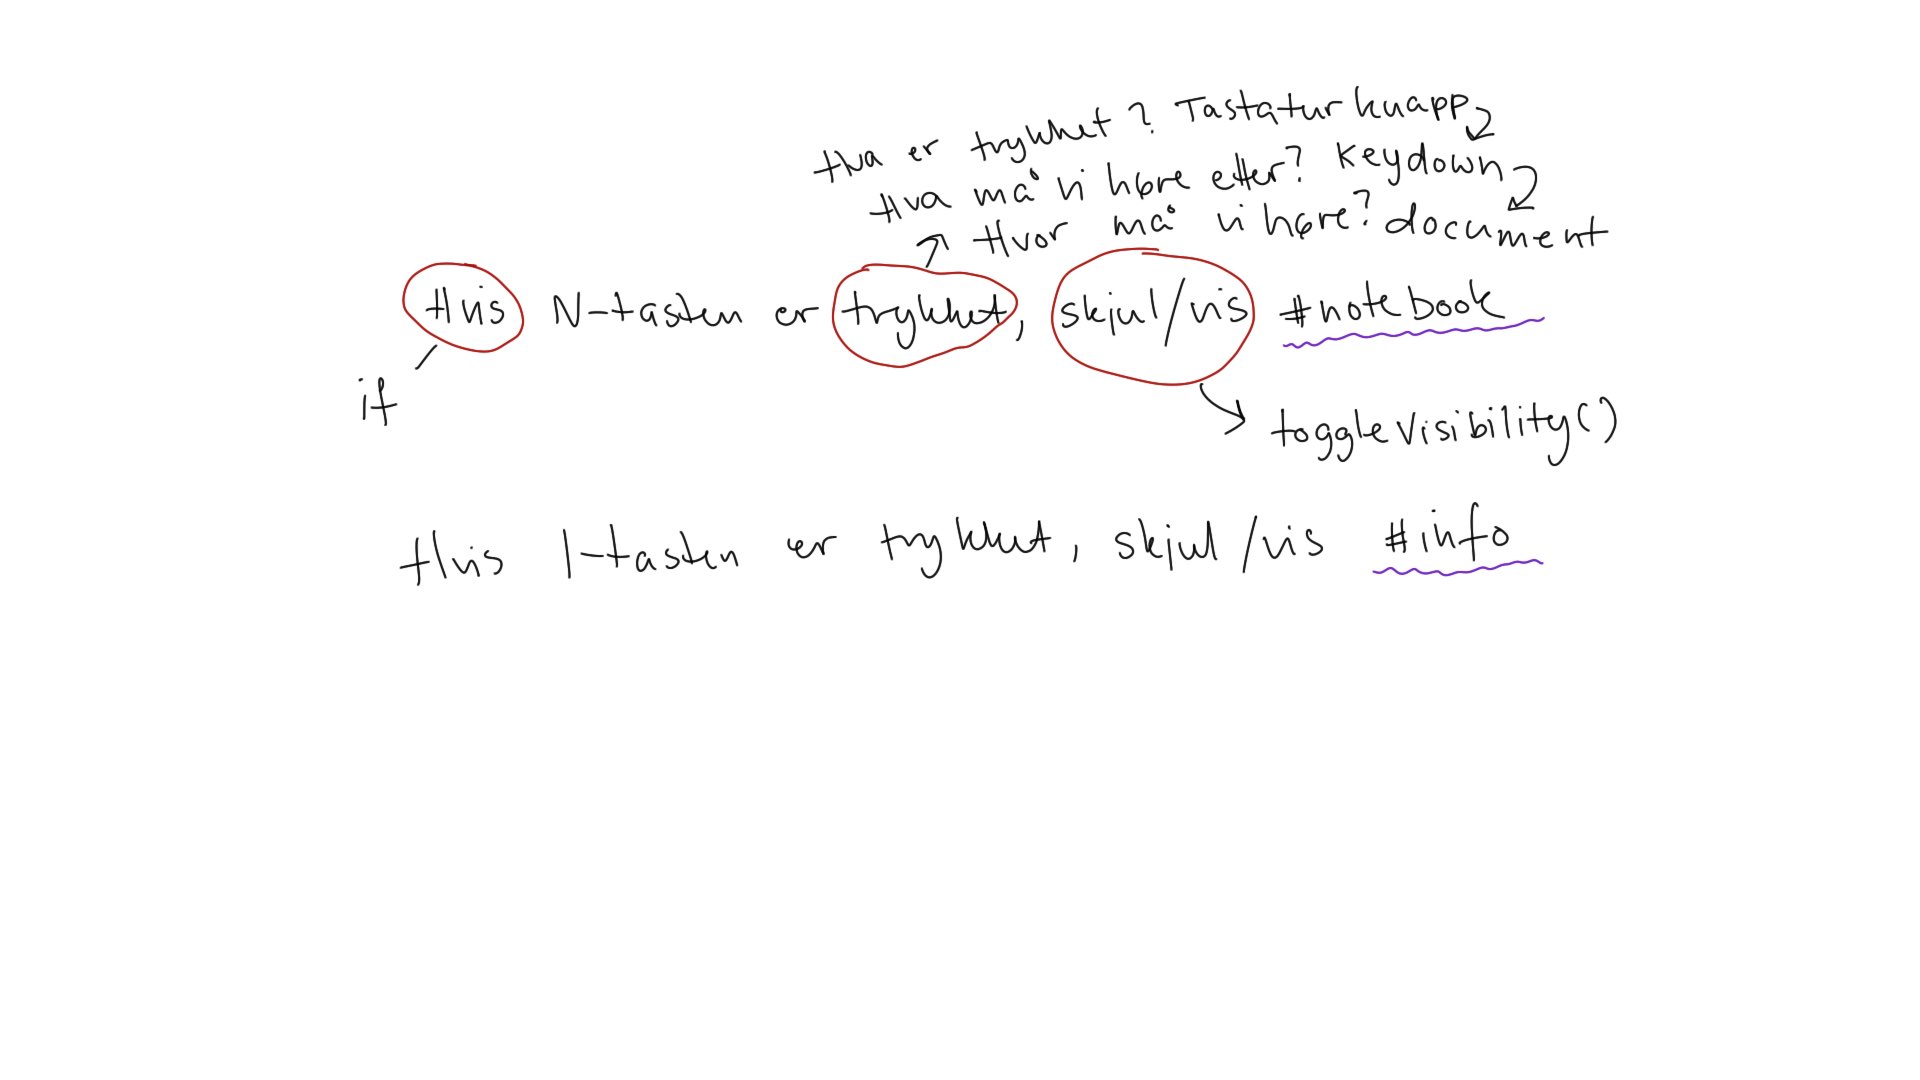 Hva er trykket? Tastatur knapp
Hva må vi høre etter? Keydown
Hvor må vi høre? document
Hvis N-tasten er trykket, skjul/vis #notebook
if
toggleVisibility()
Hvis I-tasten er trykket, skjul/vis #info